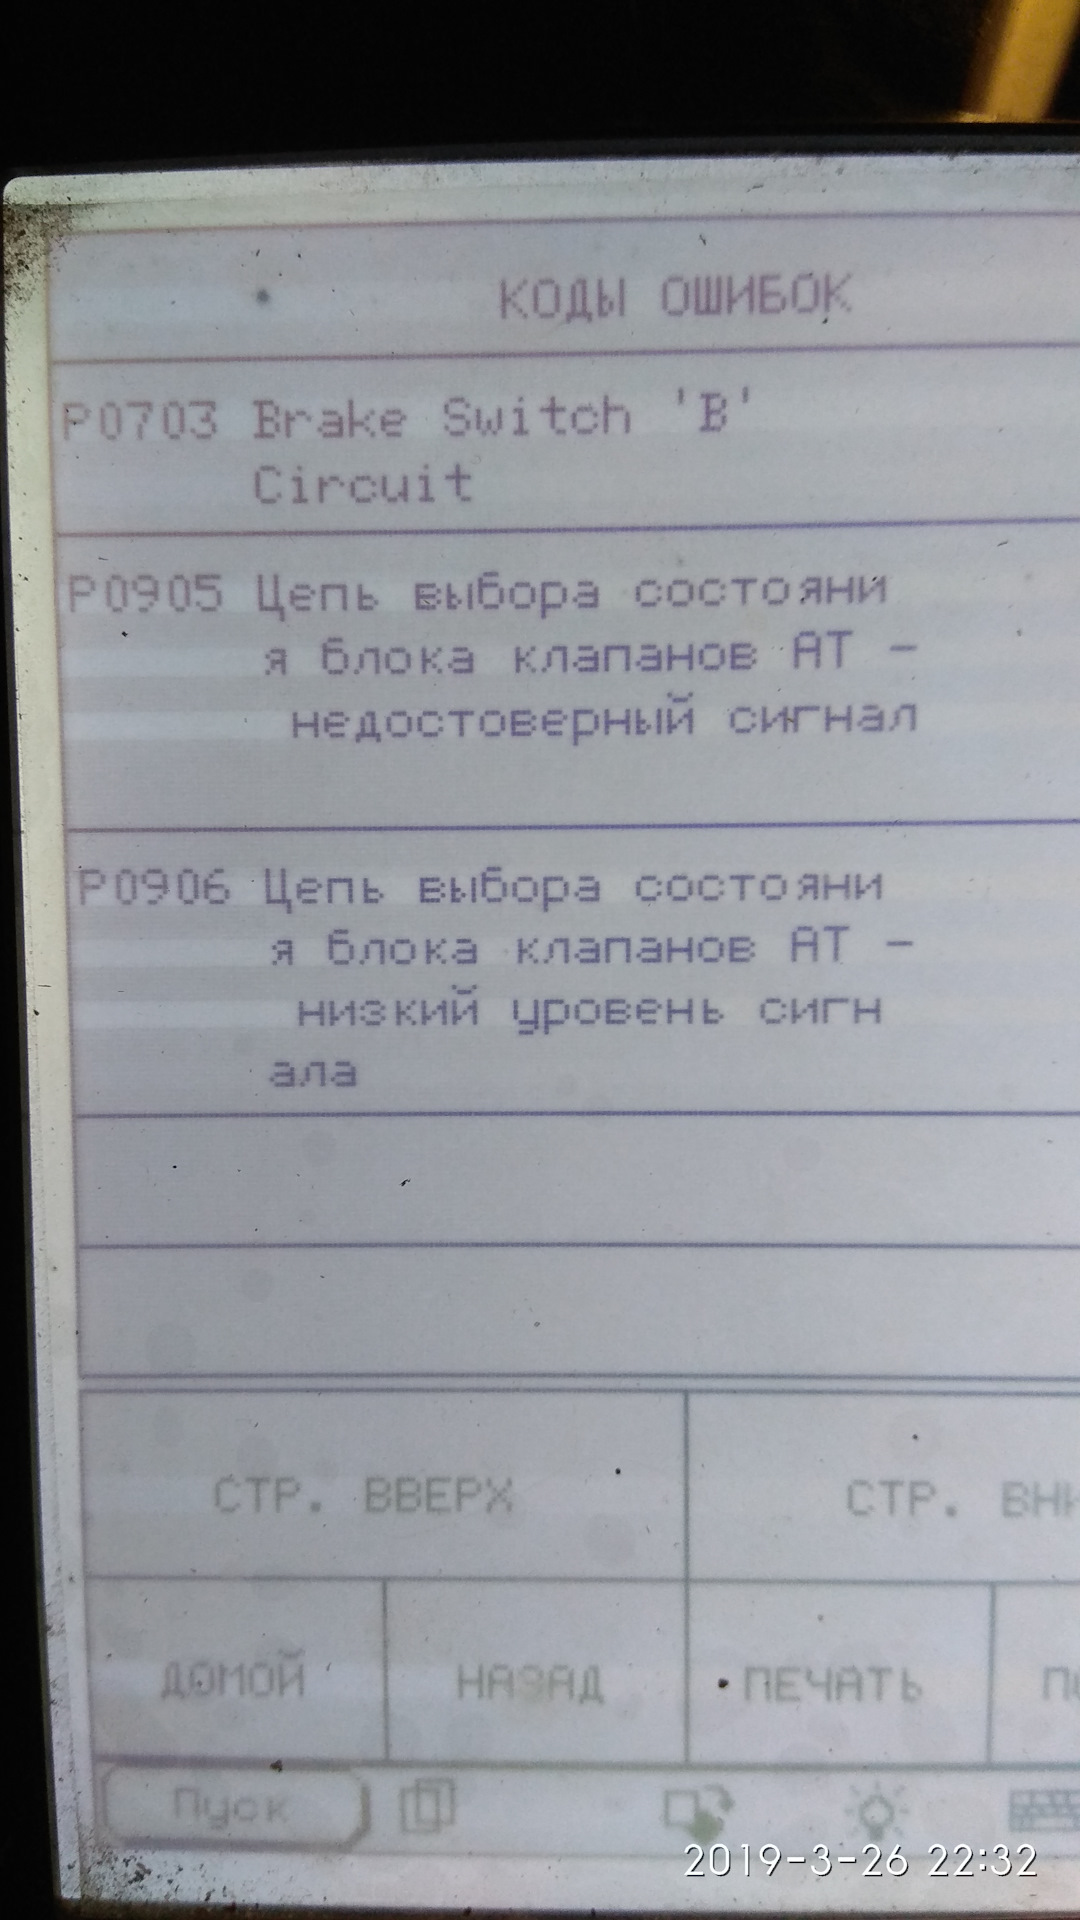 КОДЫ ОШИБОК
P0703 Brake Switch 'B'
Circuit
P0905 Цепь выбора состояни
я блока клапанов АТ -
недостоверный сигнал
P0906 Цепь выбора состояни
я блока клапанов АТ -
низкий уровень сигн
ала
СТР. ВВЕРХ СТР. ВНИ
ДОМОЙ НАЗАД ПЕЧАТЬ
Пуск
2019-3-26 22:32